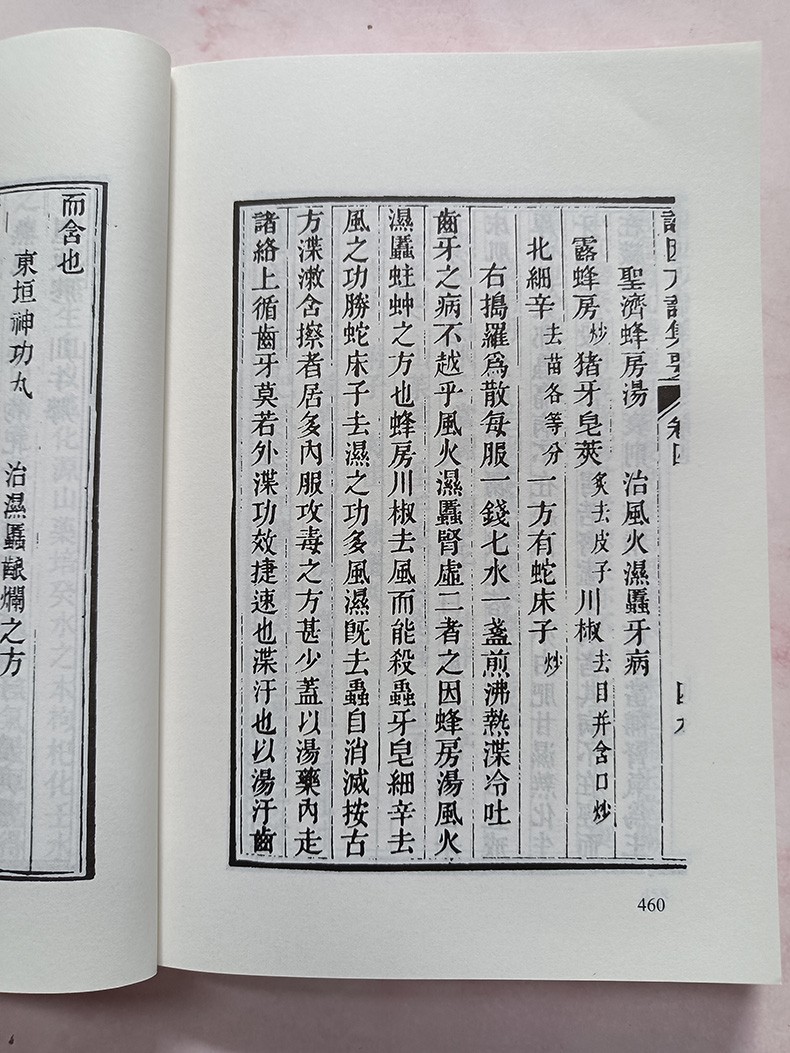 證因方論集要 卷四 四九
聖濟蜂房湯 治風火濕䘌牙病
露蜂房炒猪牙皂莢炙去皮子川椒去目并含口炒
北細辛去苗各等分一方有蛇床子炒
右搗羅爲散每服一錢七水一盞煎沸熱渫冷吐
齒牙之病不越乎風火濕䘌腎虛二者之因蜂房湯風火
濕䘌蛀蚛之方也蜂房川椒去風而能殺蟲牙皂細辛去
風之功勝蛇床子去濕之功多風濕旣去蟲自消滅按古
方渫漱含擦者居多內服攻毒之方甚少蓋以湯藥內走
諸絡上循齒牙莫若外渫功效捷速也渫汗也以湯汗齒
460
而含也
東垣神功丸 治濕䘌齦爛之方